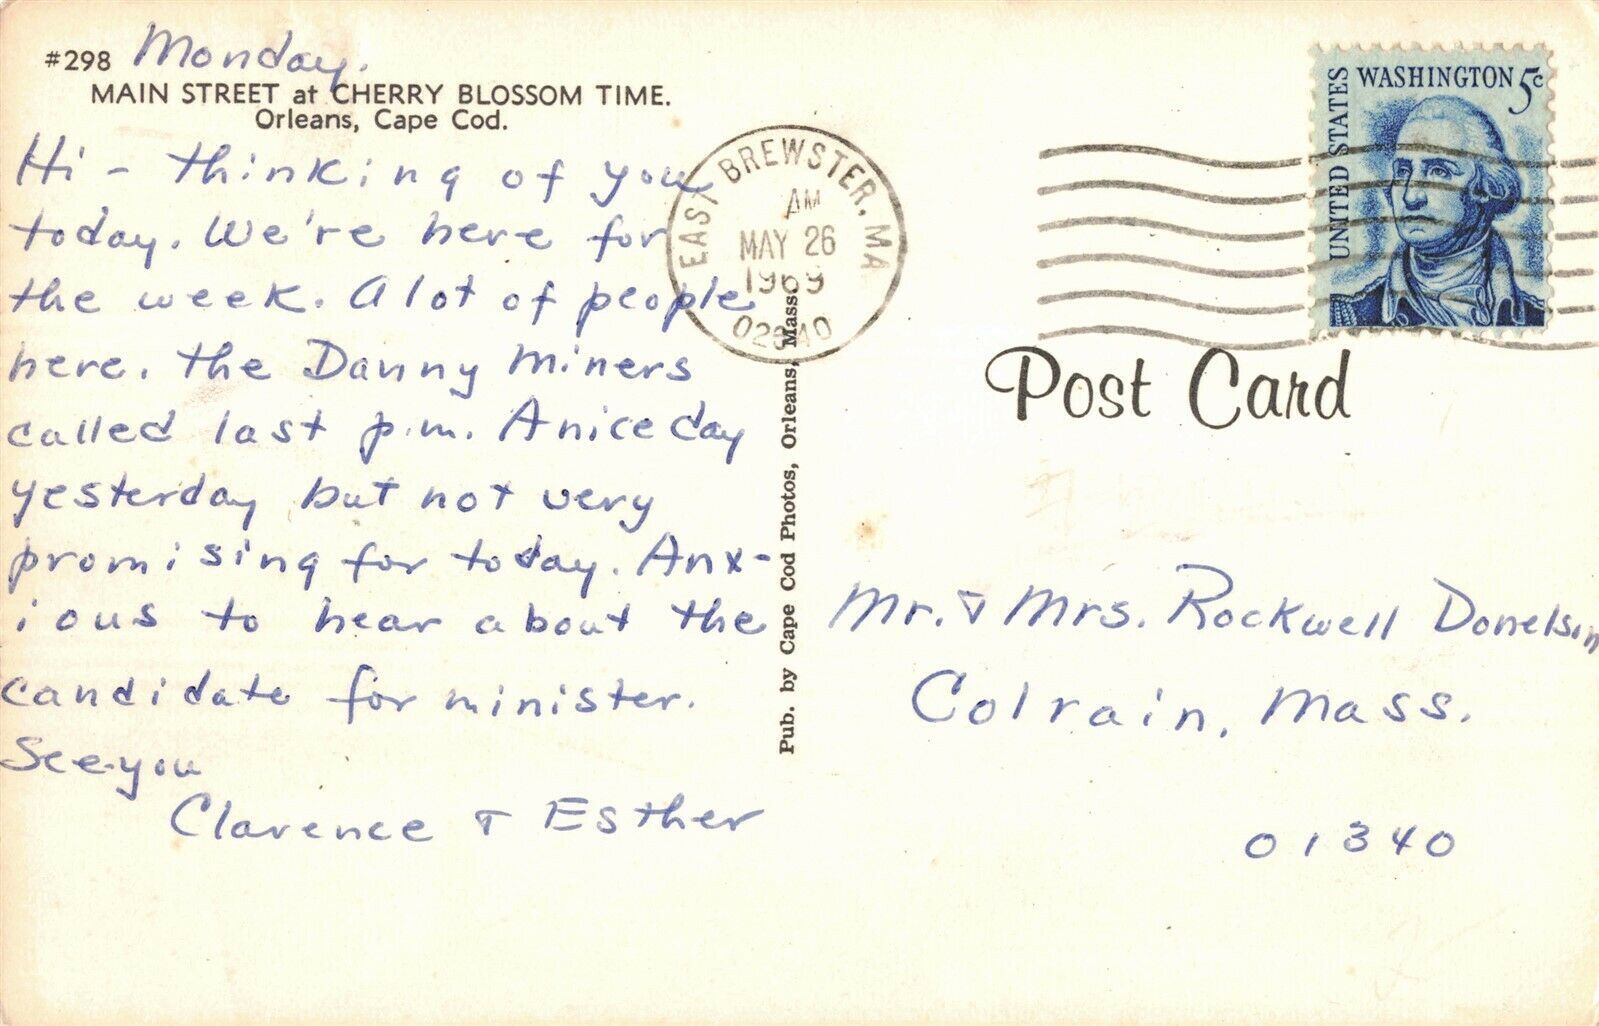 #298 Monday.
MAIN STREET at CHERRY BLOSSOM TIME.
Orleans, Cape Cod.
Hi - thinking of you
today. We're here for
the week. A lot of people
here. The Danny Miners
called last p.m. A nice day
yesterday but not very
promising for today. Anx-
ious to hear about the
candidate for minister.
See you
Clarence & Esther
Pub. by Cape Cod Photos, Orleans, Mass.
EAST BREWSTER, MA
AM
MAY 26
1969
UNITED STATES
WASHINGTON 5c
Post Card
Mr. & Mrs. Rockwell Donelson
Colrain, Mass.
01340